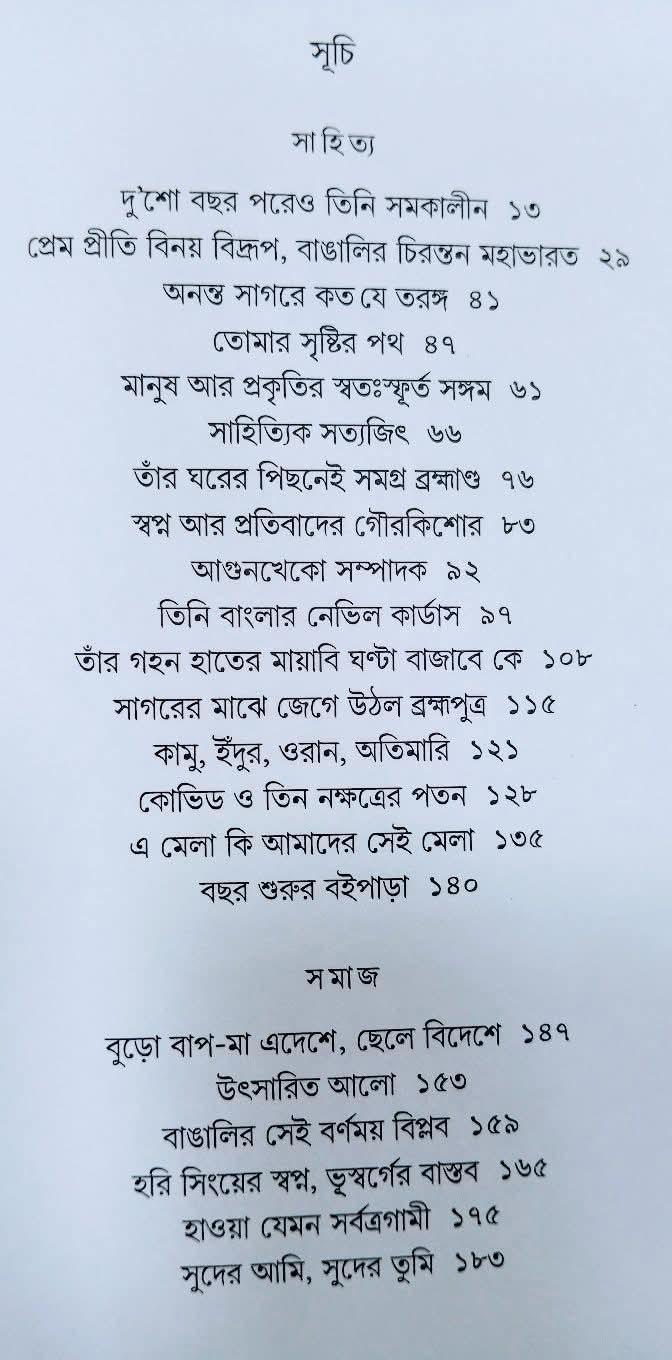 সূচি
সাহিত্য
দু'শো বছর পরেও তিনি সমকালীন ১৩
প্রেম প্রীতি বিনয় বিদ্রূপ, বাঙালির চিরন্তন মহাভারত ২৯
অনন্ত সাগরে কত যে তরঙ্গ ৪১
তোমার সৃষ্টির পথ ৪৭
মানুষ আর প্রকৃতির স্বতঃস্ফূর্ত সঙ্গম ৬১
সাহিত্যিক সত্যজিৎ ৬৬
তাঁর ঘরের পিছনেই সমগ্র ব্রহ্মাণ্ড ৭৬
স্বপ্ন আর প্রতিবাদের গৌরকিশোর ৮৩
আগুনখেকো সম্পাদক ৯২
তিনি বাংলার নেভিল কার্ডাস ৯৭
তাঁর গহন হাতের মায়াবি ঘণ্টা বাজাবে কে ১০৮
সাগরের মাঝে জেগে উঠল ব্রহ্মপুত্র ১১৫
কামু, ইঁদুর, ওরান, অতিমারি ১২১
কোভিড ও তিন নক্ষত্রের পতন ১২৮
এ মেলা কি আমাদের সেই মেলা ১৩৫
বছর শুরুর বইপাড়া ১৪০
সমাজ
বুড়ো বাপ-মা এদেশে, ছেলে বিদেশে ১৪৭
উৎসারিত আলো ১৫৩
বাঙালির সেই বর্ণময় বিপ্লব ১৫৯
হরি সিংয়ের স্বপ্ন, ভূস্বর্গের বাস্তব ১৬৫
হাওয়া যেমন সর্বত্রগামী ১৭৫
সুদের আমি, সুদের তুমি ১৮৩